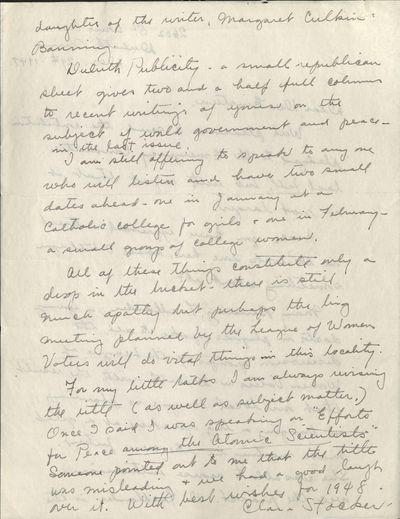 daughter of the writer, Margaret Culkin
Banning.
Duluth Publicity - a small republican
sheet gives two and a half full columns
to recent writings of yours on the
subject of world government and peace -
in the last issue.
I am still offering to speak to any one
who will listen and have two small
dates ahead - one in January at a
Catholic college for girls & one in February -
a small group of college women.
All of these things constitute only a
drop in the bucket - there is still
much apathy but perhaps the big
meeting planned by the League of Women
Voters will do vital things in this locality.
For my little talks I am always revising
the title (as well as subject matter.)
Once I said I was speaking on "Efforts
for Peace among the Atomic Scientists"
Someone pointed out to me that the title
was misleading & we had a good laugh
over it. With best wishes for 1948
Clara Stocker